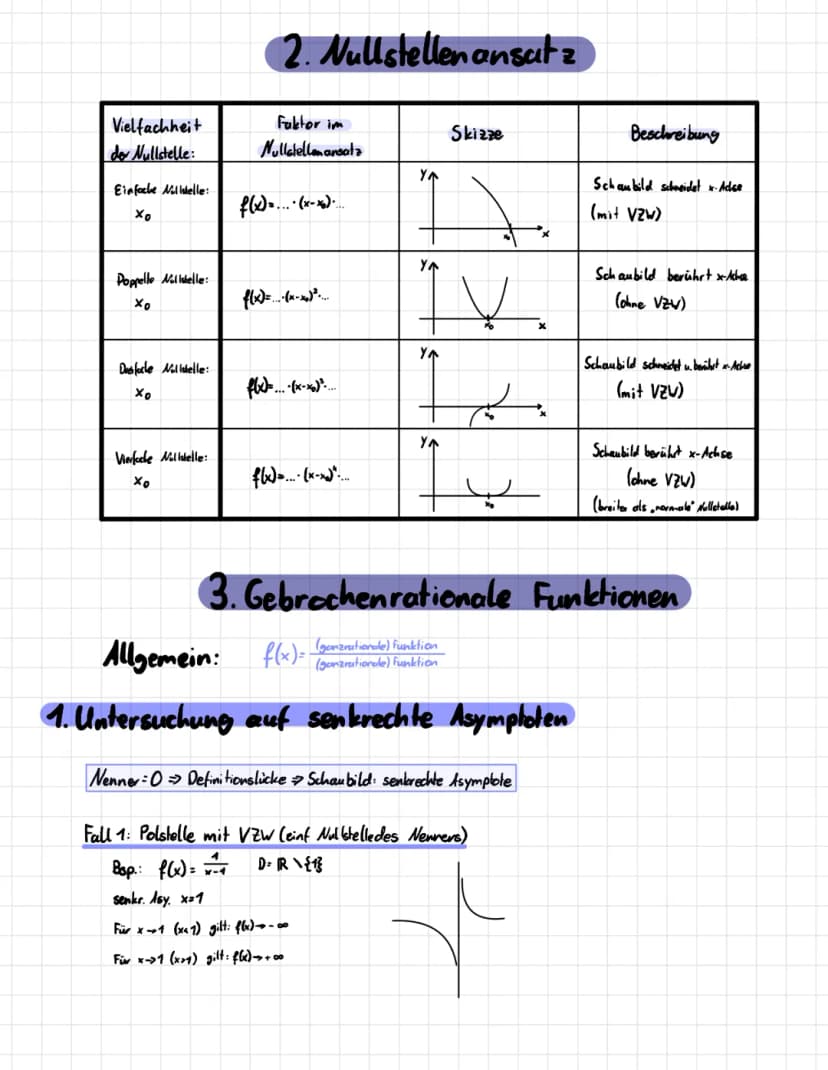 2. Nullstellenansatz
Vielfachheit
der Nullstelle:
Faktor im
Nullstellenansatz
Skizze
Beschreibung
Einfache Nullstelle:
x₀
f(x)=...·(x-x₀)·...
y
x₀
x
Schaubild schneidet x-Achse
(mit VZW)
Doppelte Nullstelle:
x₀
f(x)=...·(x-x₀)²·...
y
x₀
x
Schaubild berührt x-Achse
(ohne VZW)
Dreifache Nullstelle:
x₀
f(x)=...·(x-x₀)³·...
y
x₀
x
Schaubild schneidet u. berührt x-Achse
(mit VZW)
Vierfache Nullstelle:
x₀
f(x)=...·(x-x₀)⁴·...
y
x₀
Schaubild berührt x-Achse
(ohne VZW)
(breiter als „normale" Nullstelle)
3. Gebrochenrationale Funktionen
Allgemein: f(x)= (ganzrationale) Funktion / (ganzrationale) Funktion
1. Untersuchung auf senkrechte Asymptoten
Nenner=0 ⇒ Definitionslücke ⇒ Schaubild: senkrechte Asymptote
Fall 1: Polstelle mit VZW (einf Nullstelle des Nenners)
Bsp.: f(x)= 1/(x-1) D= ℝ \{1}
senkr. Asy. x=1
Für x→1 (x<1) gilt: f(x)→-∞
Für x→1 (x>1) gilt: f(x)→+∞